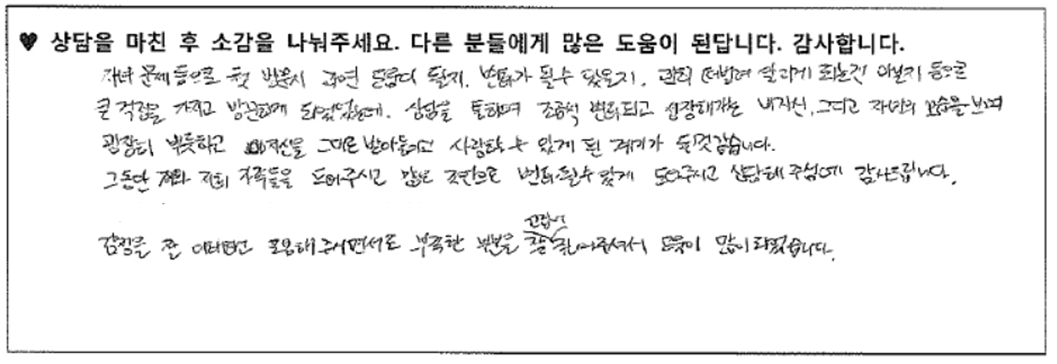 ♥ 상담을 마친 후 소감을 나눠주세요. 다른 분들에게 많은 도움이 된답니다. 감사합니다.
자녀 문제 등으로 첫 방문시 과연 도움이 될지, 변화가 될수 있을지, 괜히 떠벌려 알리게 되는건 아닌지 등으로
큰 걱정을 가지고 방문하게 되었었는데, 상담을 통하여 조금씩 변화되고 성장해가는 내자신, 그리고 자녀의 모습을 보며
굉장히 뿌듯하고 자신을 그대로 받아들이고 사랑할 수 있게 된 계기가 된것 같습니다.
그동안 저와 저희 가족들을 도와주시고 많은 조언으로 변화될수 있게 도와주시고 상담해주심에 감사드립니다.
감정을 잘 이해하고 포용해주시면서도 부족한 부분을 잘 짚어주셔서 도움이 많이 되었습니다.